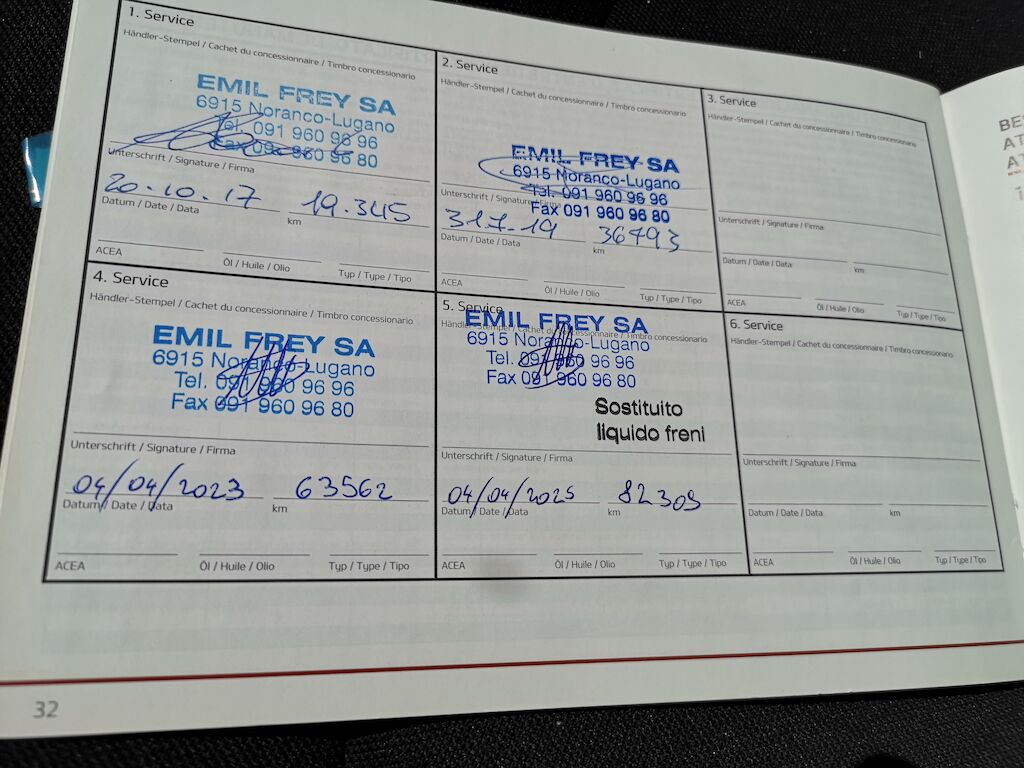 1. Service
Händler-Stempel / Cachet du concessionnaire / Timbro concessionario
EMIL FREY SA
6915 Noranco-Lugano
Tel. 091 960 96 96
Fax 091 960 96 80
Unterschrift / Signature / Firma
20.10.17 19.345
Datum / Date / Data km
ACEA Öl / Huile / Olio Typ / Type / Tipo
2. Service
Händler-Stempel / Cachet du concessionnaire / Timbro concessionario
EMIL FREY SA
6915 Noranco-Lugano
Tel. 091 960 96 96
Unterschrift / Signature / Firma
Fax 091 960 96 80
31.7.19 36793
Datum / Date / Data km
ACEA Öl / Huile / Olio Typ / Type / Tipo
3. Service
Händler-Stempel / Cachet du concessionnaire / Timbro concessionario
Unterschrift / Signature / Firma
Datum / Date / Data km
ACEA Öl / Huile / Olio Typ / Type / Tipo
4. Service
Händler-Stempel / Cachet du concessionnaire / Timbro concessionario
EMIL FREY SA
6915 Noranco-Lugano
Tel. 091 960 96 96
Fax 091 960 96 80
Unterschrift / Signature / Firma
04/04/2023 63562
Datum / Date / Data km
ACEA Öl / Huile / Olio Typ / Type / Tipo
5. Service
EMIL FREY SA
Händler-Stempel / Cachet du concessionnaire / Timbro concessionario
6915 Noranco-Lugano
Tel. 091 960 96 96
Fax 091 960 96 80
Sostituito
liquido freni
Unterschrift / Signature / Firma
04/04/2025 82309
Datum / Date / Data km
ACEA Öl / Huile / Olio Typ / Type / Tipo
6. Service
Händler-Stempel / Cachet du concessionnaire / Timbro concessionario
Unterschrift / Signature / Firma
Datum / Date / Data km
ACEA Öl / Huile / Olio Typ / Type / Tipo
32